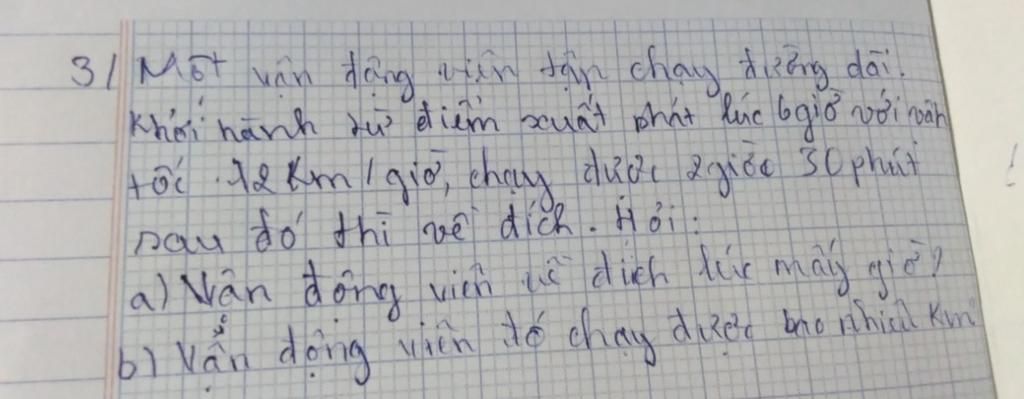 3/ Một vận động viên tập chạy đường dài.
Khởi hành từ điểm xuất phát lúc 6giờ với vận
tốc 12 Km/giờ, chạy được 2giờ 30 phút
sau đó thì về đích. Hỏi:
a) Vận động viên về đích lúc mấy giờ?
b) Vận động viên đó chạy được bao nhiêu Km